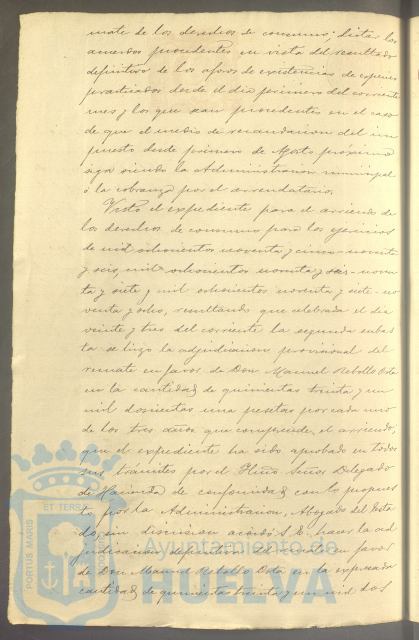 mate de los derechos de consumo; dicta los
acuerdos procedentes en vista del resultado
definitivo de los aforos de existencias de especies
practicados desde el dia primero del corriente
mes y los que sean procedentes en el caso
de que el medio de recaudacion del im
puesto desde primero de Agosto próximo
siga siendo la Administracion municipal
ó la cobranza por el arrendatario.
Visto el expediente para el arriendo de
los derechos de consumo para los ejercicios
de mil ochocientos noventa y cinco-noventa
y seis, mil ochocientos noventa y seis-noven
ta y siete y mil ochocientos noventa y siete-no
venta y ocho, resultando que celebrada el dia
veinte y tres del corriente la segunda subas
ta se hizo la adjudicacion provisional del
remate en favor de Don Manuel Rebollo Orta
en la cantidad de quinientas treinta y un
mil doscientas una pesetas por cada uno
de los tres años que comprende el arriendo,
que el expediente ha sido aprobado en todos
sus trámites por el Iltmo Señor Delegado
de Hacienda de conformidad con lo propues
to por la Administracion, Abogado del Esta
do, sin discusion acordó S.E. hacer la ad
judicacion definitiva del remate en favor
de Don Manuel Rebollo Orta en la expresada
cantidad de quinientas treinta y un mil dos
PORTUS MARIS
ET TERRA
Ayuntamiento de
HUELVA